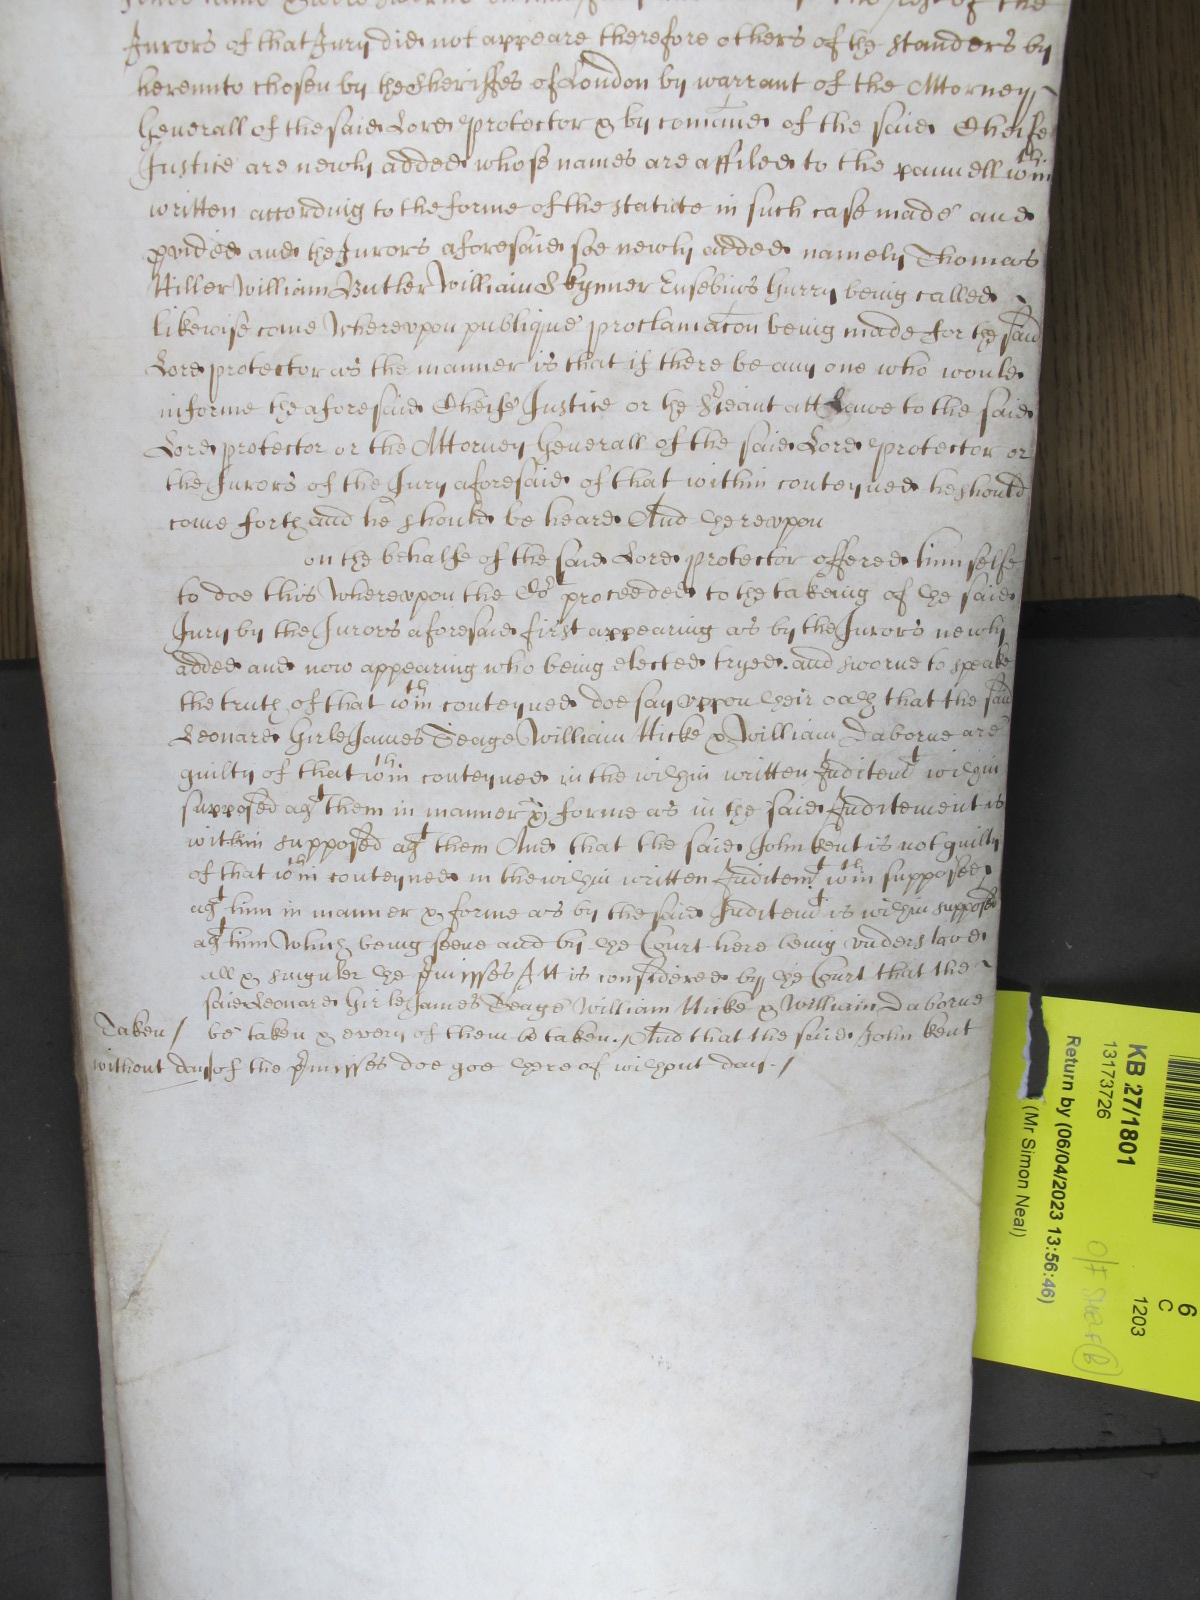 of the
Jurors of that Jury did not appeare therefore others of the standers by
hereunto chosen by the Sheriffes of London by warrant of the Attorney
Generall of the said Lord Protector & by comand of the said Cheife
Justice are newly added whose names are affiled to the pannell wthin
written according to the forme of the statute in such case made and
pvided and the Jurors aforesaid soe newly added namely Thomas
Hiller William Butler William Skynner Eusebius Hurry being called
likewise come Wherevpon publique proclamacon being made for the said
Lord protector as the manner is that if there be any one who would
informe the aforesaid Cheife Justice or the Sieant att Lawe to the said
Lord protector or the Attorney Generall of the said Lord Protector or
the Jurors of the Jury aforesaid of that within conteyned he should
come forth and he should be heard And therevpon
on the behalfe of the said Lord protector offered himselfe
to doe this Wherevpon the Co proceeded to the takeing of the said
Jury by the Jurors aforesaid first appearing as by the Jurors newly
added and now appearing who being elected tryed and sworne to speake
the truth of that wthin conteyned doe say vppon their oath that the said
Leonard Girle James Teage William Hicke & William Daborne are
guilty of that wthin conteyned in the within written Inditemt within
supposed agt them in manner & forme as in the said Inditement is
within supposed agt them And that the said John Kent is not guilty
of that wthin conteyned in the within written Inditemt wthin supposed
agt him in manner & forme as by the said Inditemt is within supposed
agt him Which being seene and by the Court here being vnderstood
all & singuler the pmisses Itt is considered by the Court that the
said Leonard Girle James Teage William Hicke & William Daborne
Taken / be taken & every of them be taken. / And that the said John Kent
without day of the pmisses doe goe thereof without day. /
KB 27/1801
13173726
Return by (06/04/2023 13:56:46)
(Mr Simon Neal)
6
C
1203